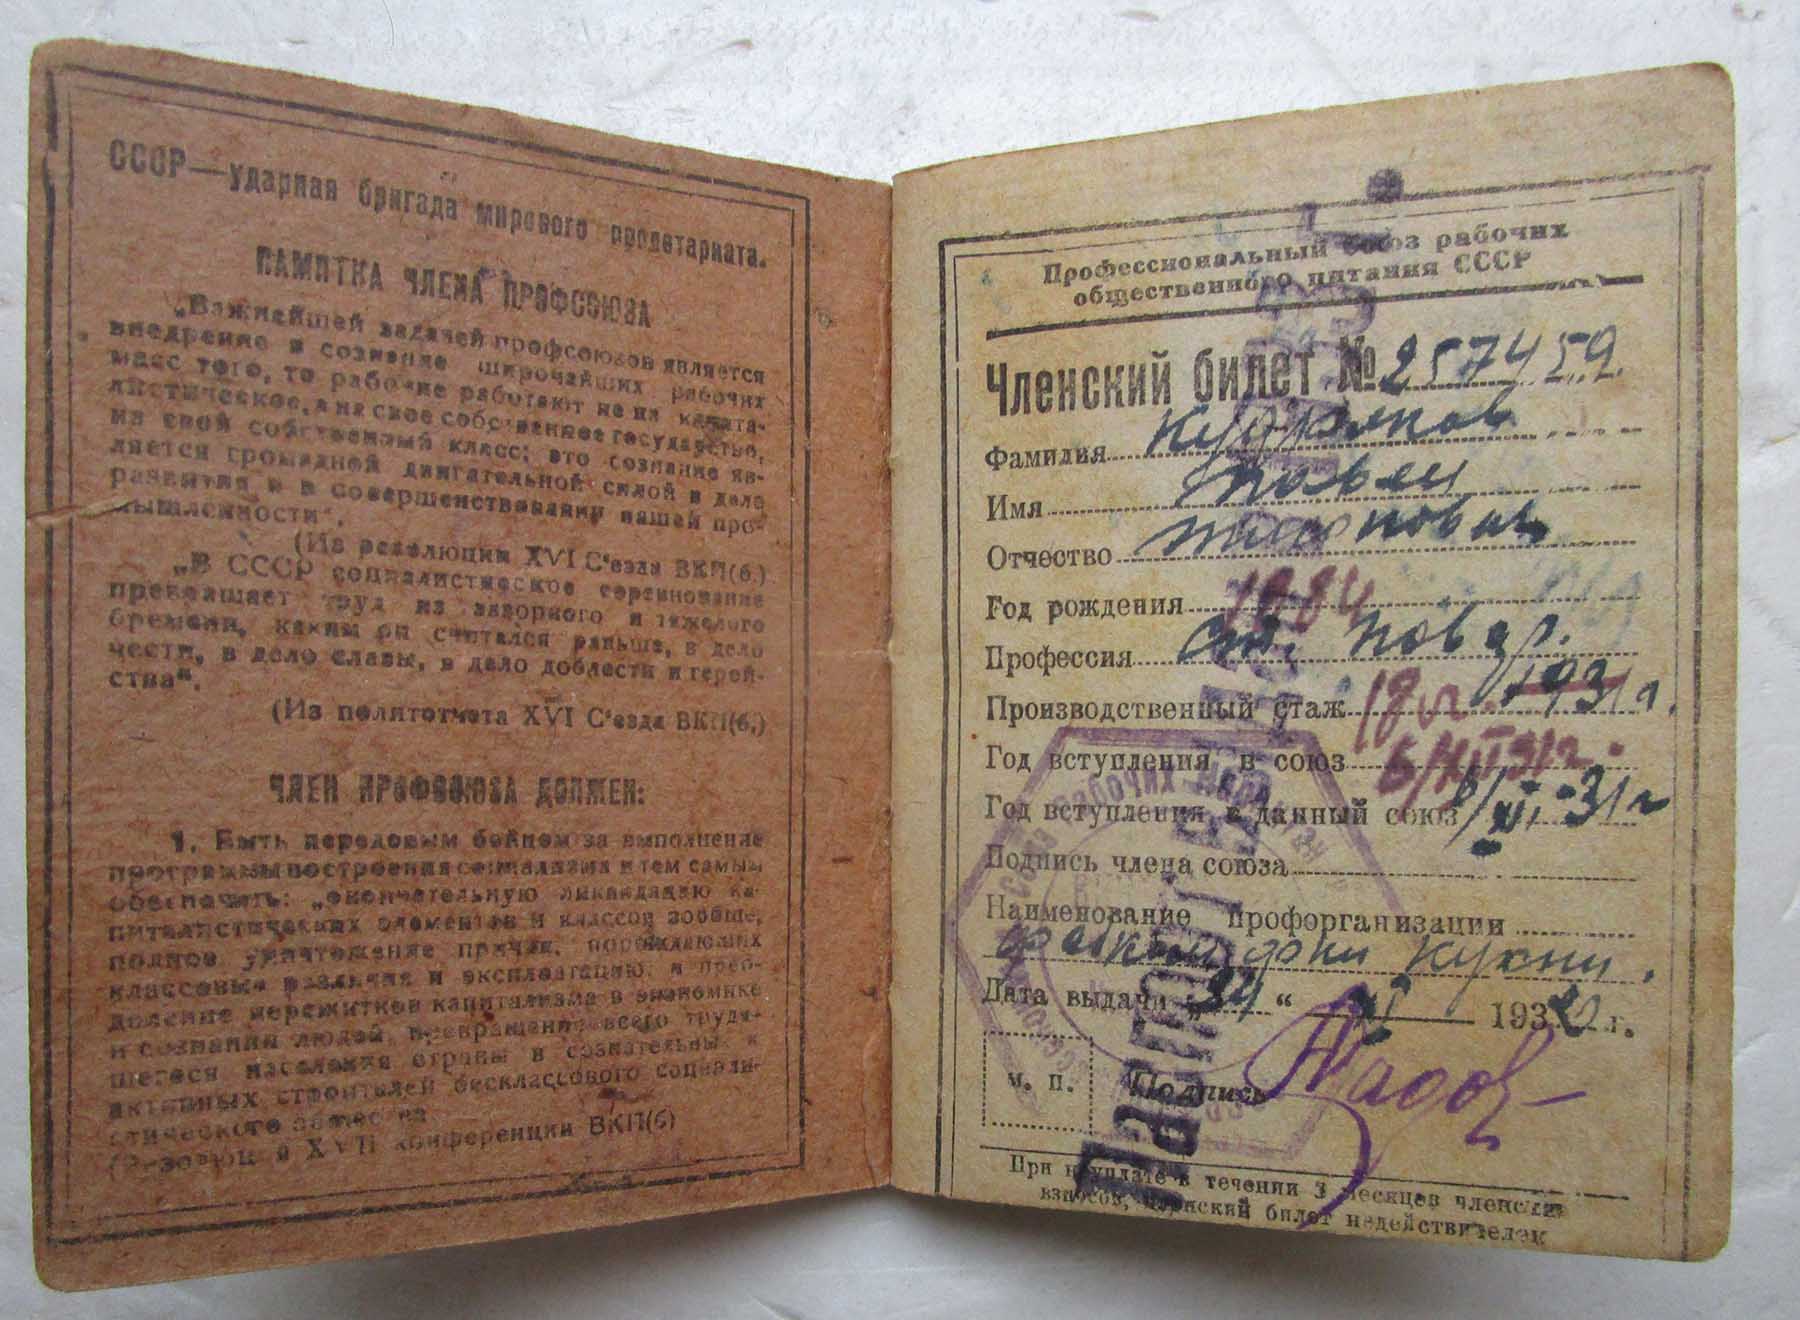 СССР—ударная бригада мирового пролетариата.
ПАМЯТКА ЧЛЕНА ПРОФСОЮЗА
„Важнейшей задачей профсоюзов является
внедрение в сознание широчайших рабочих
масс того, то рабочие работают не на капита-
листическое, а на свое собственное государство,
на свой собственный класс; это сознание яв-
ляется громадной двигательной силой в деле
развития и в совершенствовании нашей про-
мышленности".
(Из резолюции XVI С'езда ВКП(б.)
„В СССР социалистическое соревнование
превращает труд из зазорного и тяжелого
бремени, каким он считался раньше, в дело
чести, в дело славы, в дело доблести и герой-
ства".
(Из политотчета XVI С'езда ВКП(б.)
ЧЛЕН ПРОФСОЮЗА ДОЛЖЕН:
1. Быть передовым бойцом за выполнение
программы построения социализма и тем самым
обеспечить: „окончательную ликвидацию ка-
питалистических элементов и классов вообще,
полное уничтожение причин, порождающих
классовые различия и эксплоатацию, и преодо-
ление пережитков капитализма в экономике
и сознании людей, превращение всего трудя-
щегося населения страны в сознательных и
активных строителей бесклассового социали-
стического общества
(Резолюций XVII конференции ВКП(б)
Профессиональный союз рабочих
общественного питания СССР
Членский билет № 2574459
Фамилия
Имя Павел
Отчество
Год рождения 1884
Профессия ст. повар.
Производственный стаж 18 л. 1931 г.
Год вступления в союз 6/XII 31 г.
Год вступления в данный союз 6/XII-31 г
Подпись члена союза
Наименование профорганизации
кухни.
Дата выдачи „ “ 193 г.
м. п. Подпись
При неуплате в течении 3 месяцев членских
взносов, членский билет недействителен